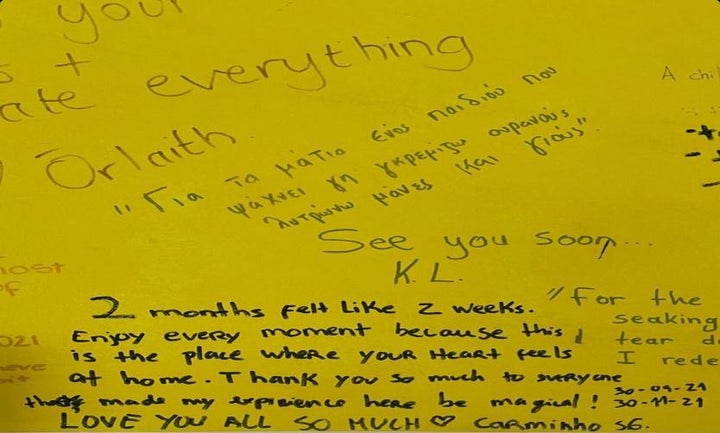 your
+
ate everything
Órlaith
"Για τα μάτια ενός παιδιού που
ψάχνει γη γκρεμίζω ουρανούς
λυτρώνω μάνες και γιούς".
A chil
See you soon...
K.L.
ost
of
021
2 months felt like 2 weeks.
Enjoy every moment because this
is the place where your heart feels
at home. Thank you so much to everyone
that made my expirience here be magical!
LOVE YOU ALL SO MUCH ♡ Carminho SG.
30-09-21
30-11-21
"For the
seaking
tear d
I rede